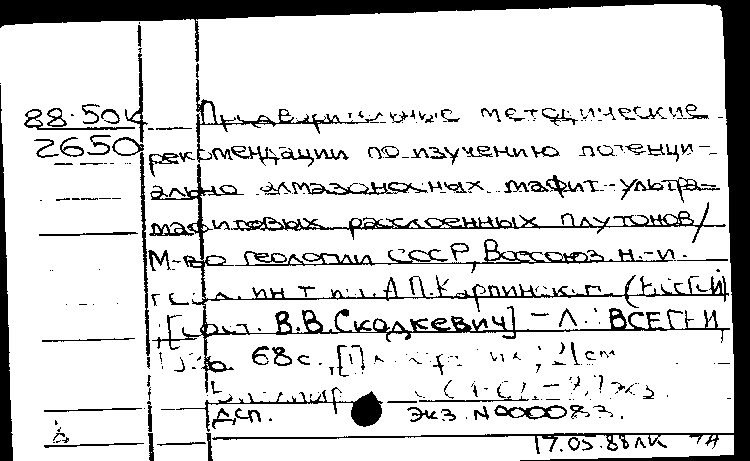 88-50к Предварительные методические
2650 рекомендации по изучению потенци-
ально алмазоносных мафит-ультра-
мафитовых расслоенных плутонов/
М-во геологии СССР, Всесоюз. н.-и.
геол. ин-т им. А.П. Карпинского (ВСЕГЕИ)
; [Сост. В.В. Скадкевич] - Л.: ВСЕГЕИ,
68 с., [1] л. ; 21 см
ДСП. Экз. N 000083.
17.05.88 ЛК